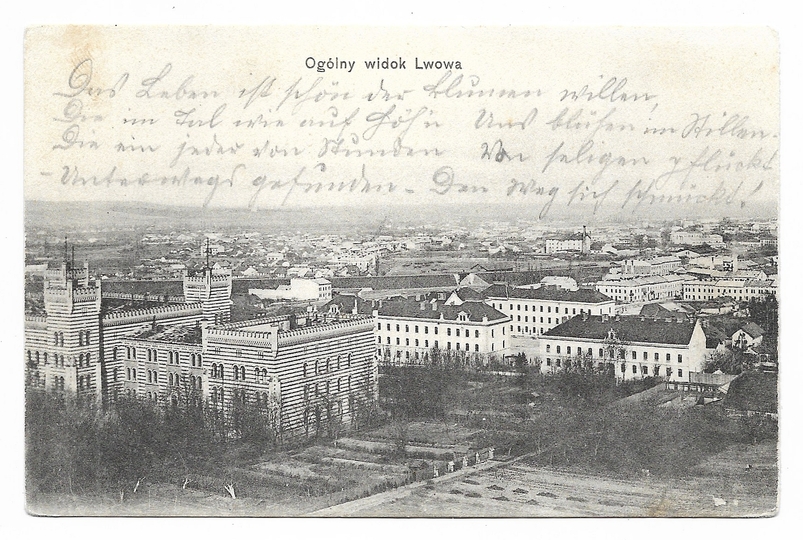 Ogólny widok Lwowa
Das Leben ist schön der Blumen willen,
Die im Tal wie auf Höh'n Uns blühen im Stillen.
Die ein jeder von Stunden Von seligen pflückt
- Unterwegs gefunden - Den Weg sich schmückt!